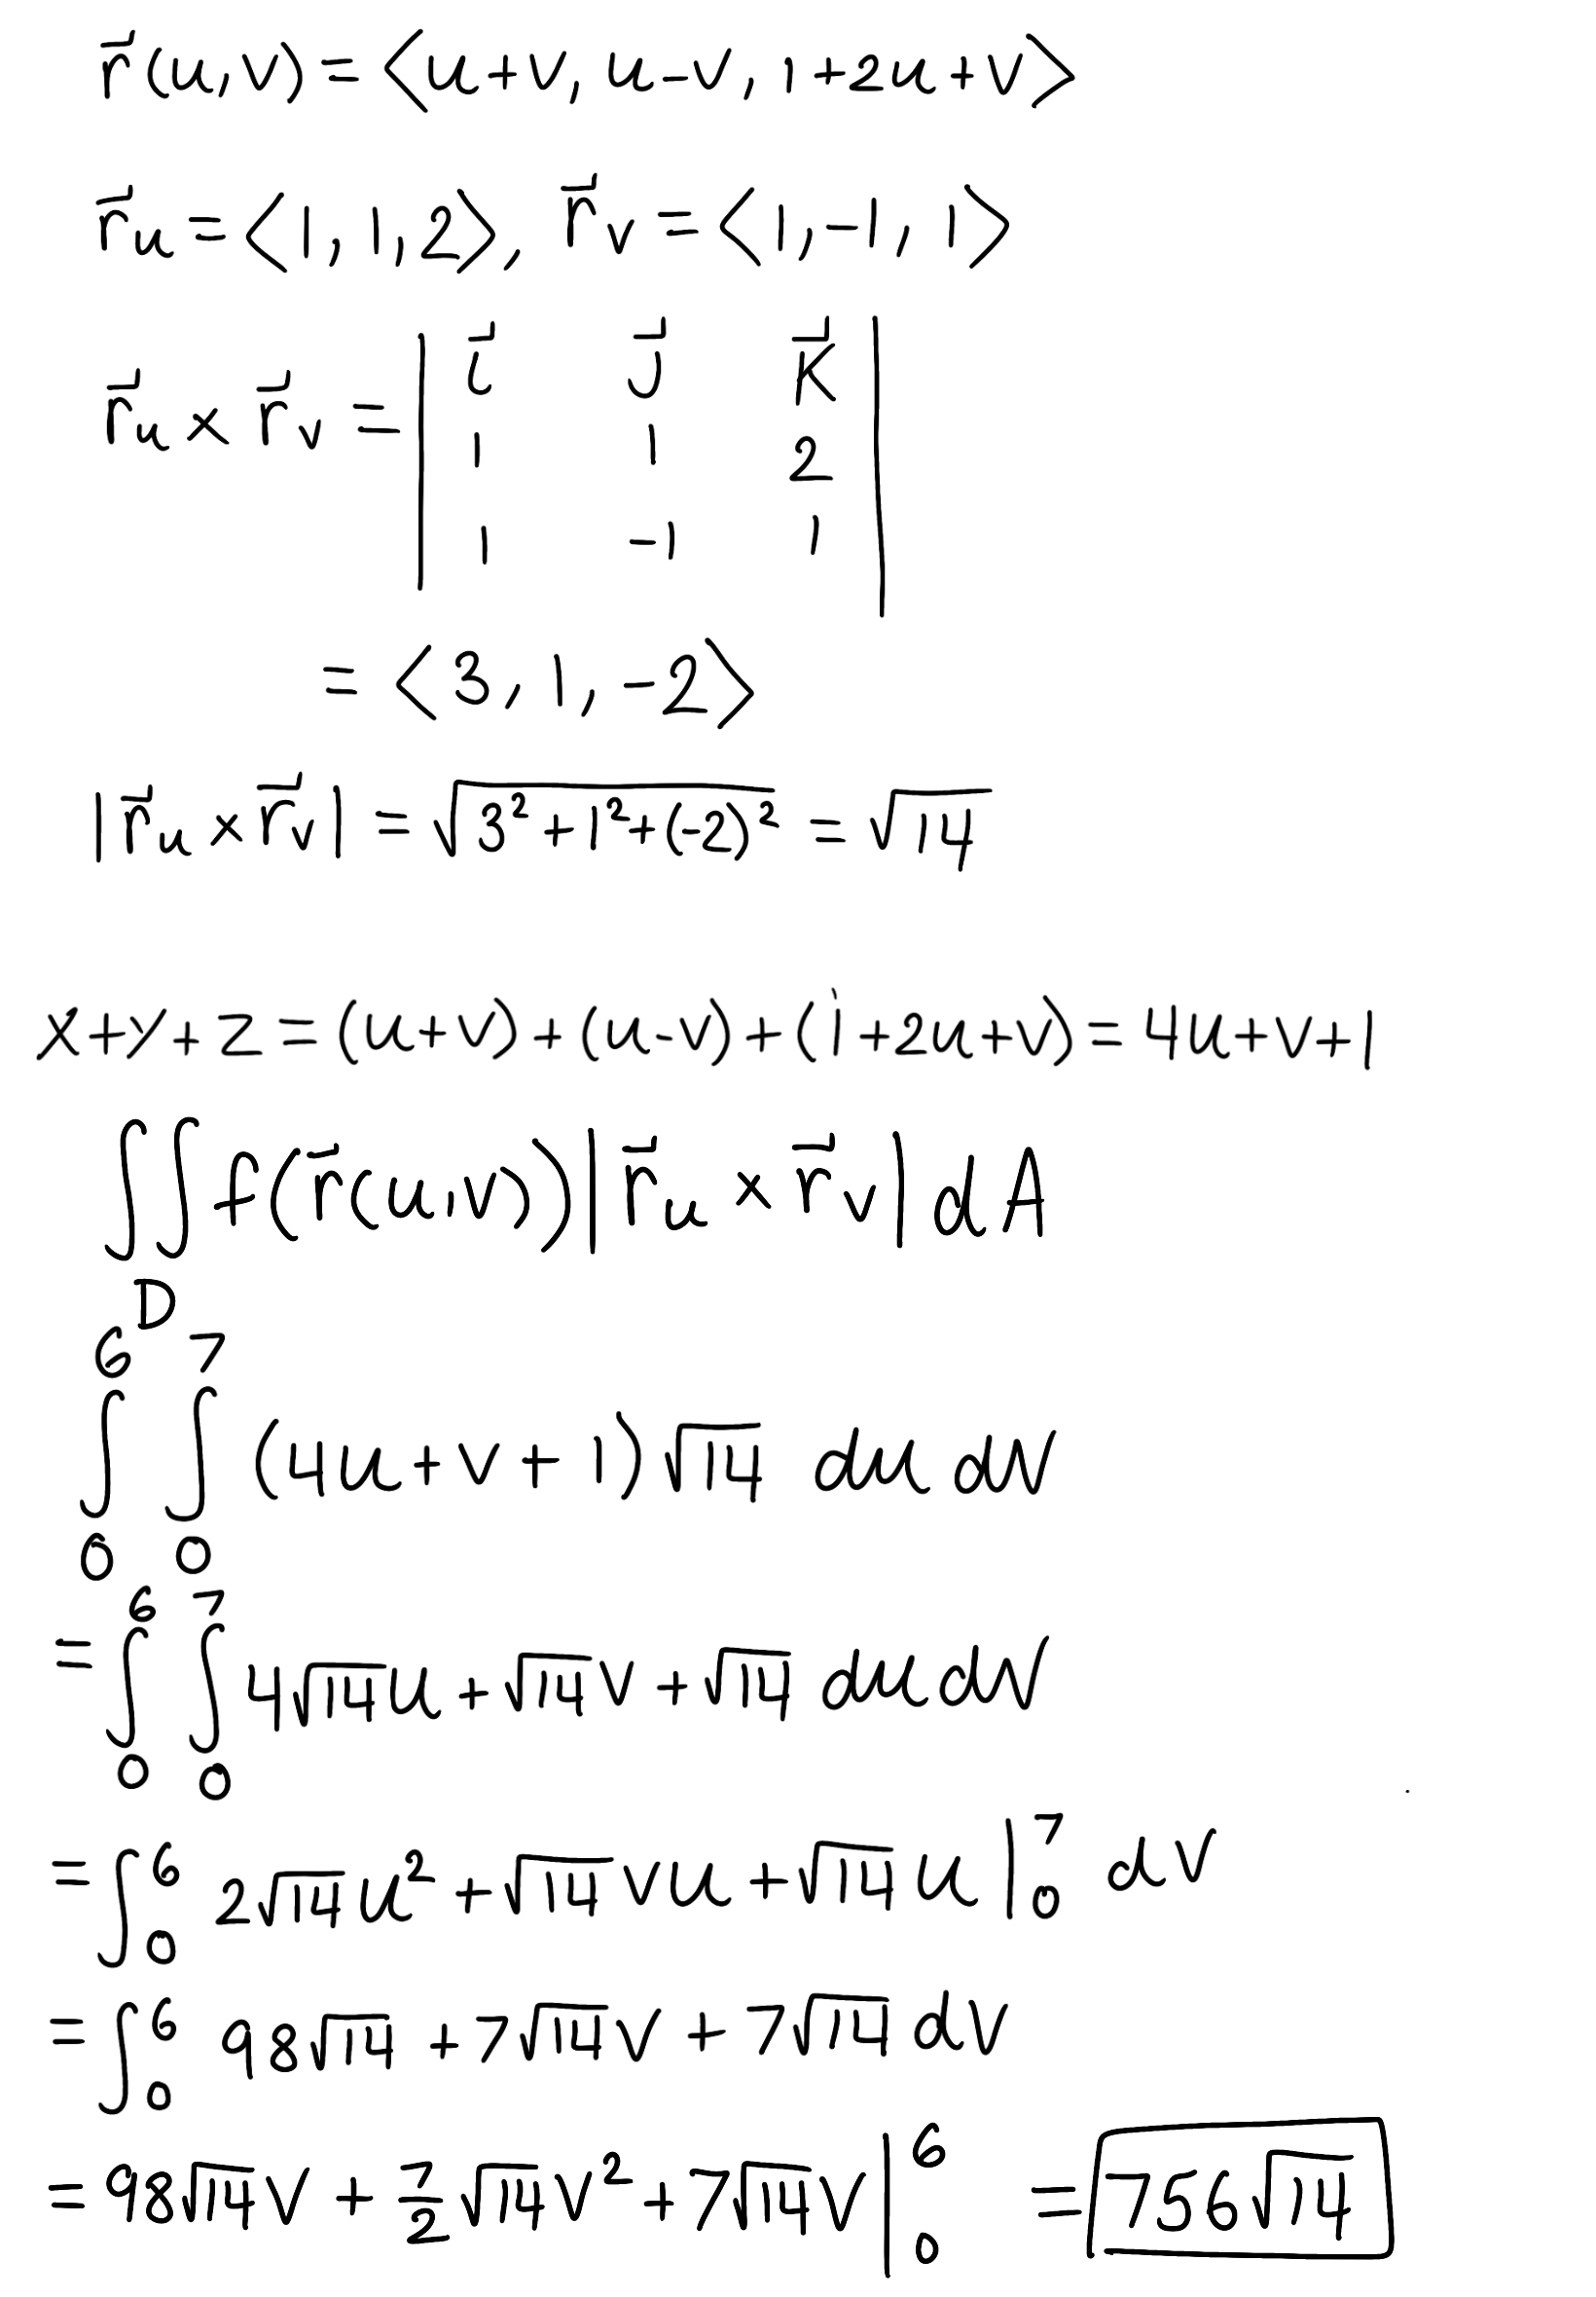 r⃗(u,v) = ⟨u+v, u-v, 1+2u+v⟩
r⃗u = ⟨1, 1, 2⟩, r⃗v = ⟨1, -1, 1⟩
r⃗u × r⃗v = | i⃗ j⃗ k⃗ |
| 1 1 2 |
| 1 -1 1 |
= ⟨3, 1, -2⟩
|r⃗u × r⃗v| = √(3² + 1² + (-2)²) = √14
x+y+z = (u+v)+(u-v)+(1+2u+v) = 4u+v+1
∬_D f(r⃗(u,v)) |r⃗u × r⃗v| dA
∫₀⁶ ∫₀⁷ (4u+v+1)√14 du dv
= ∫₀⁶ ∫₀⁷ 4√14u + √14v + √14 du dv
= ∫₀⁶ 2√14u² + √14vu + √14u |₀⁷ dv
= ∫₀⁶ 98√14 + 7√14v + 7√14 dv
= 98√14v + 7/2 √14v² + 7√14v |₀⁶ = 756√14